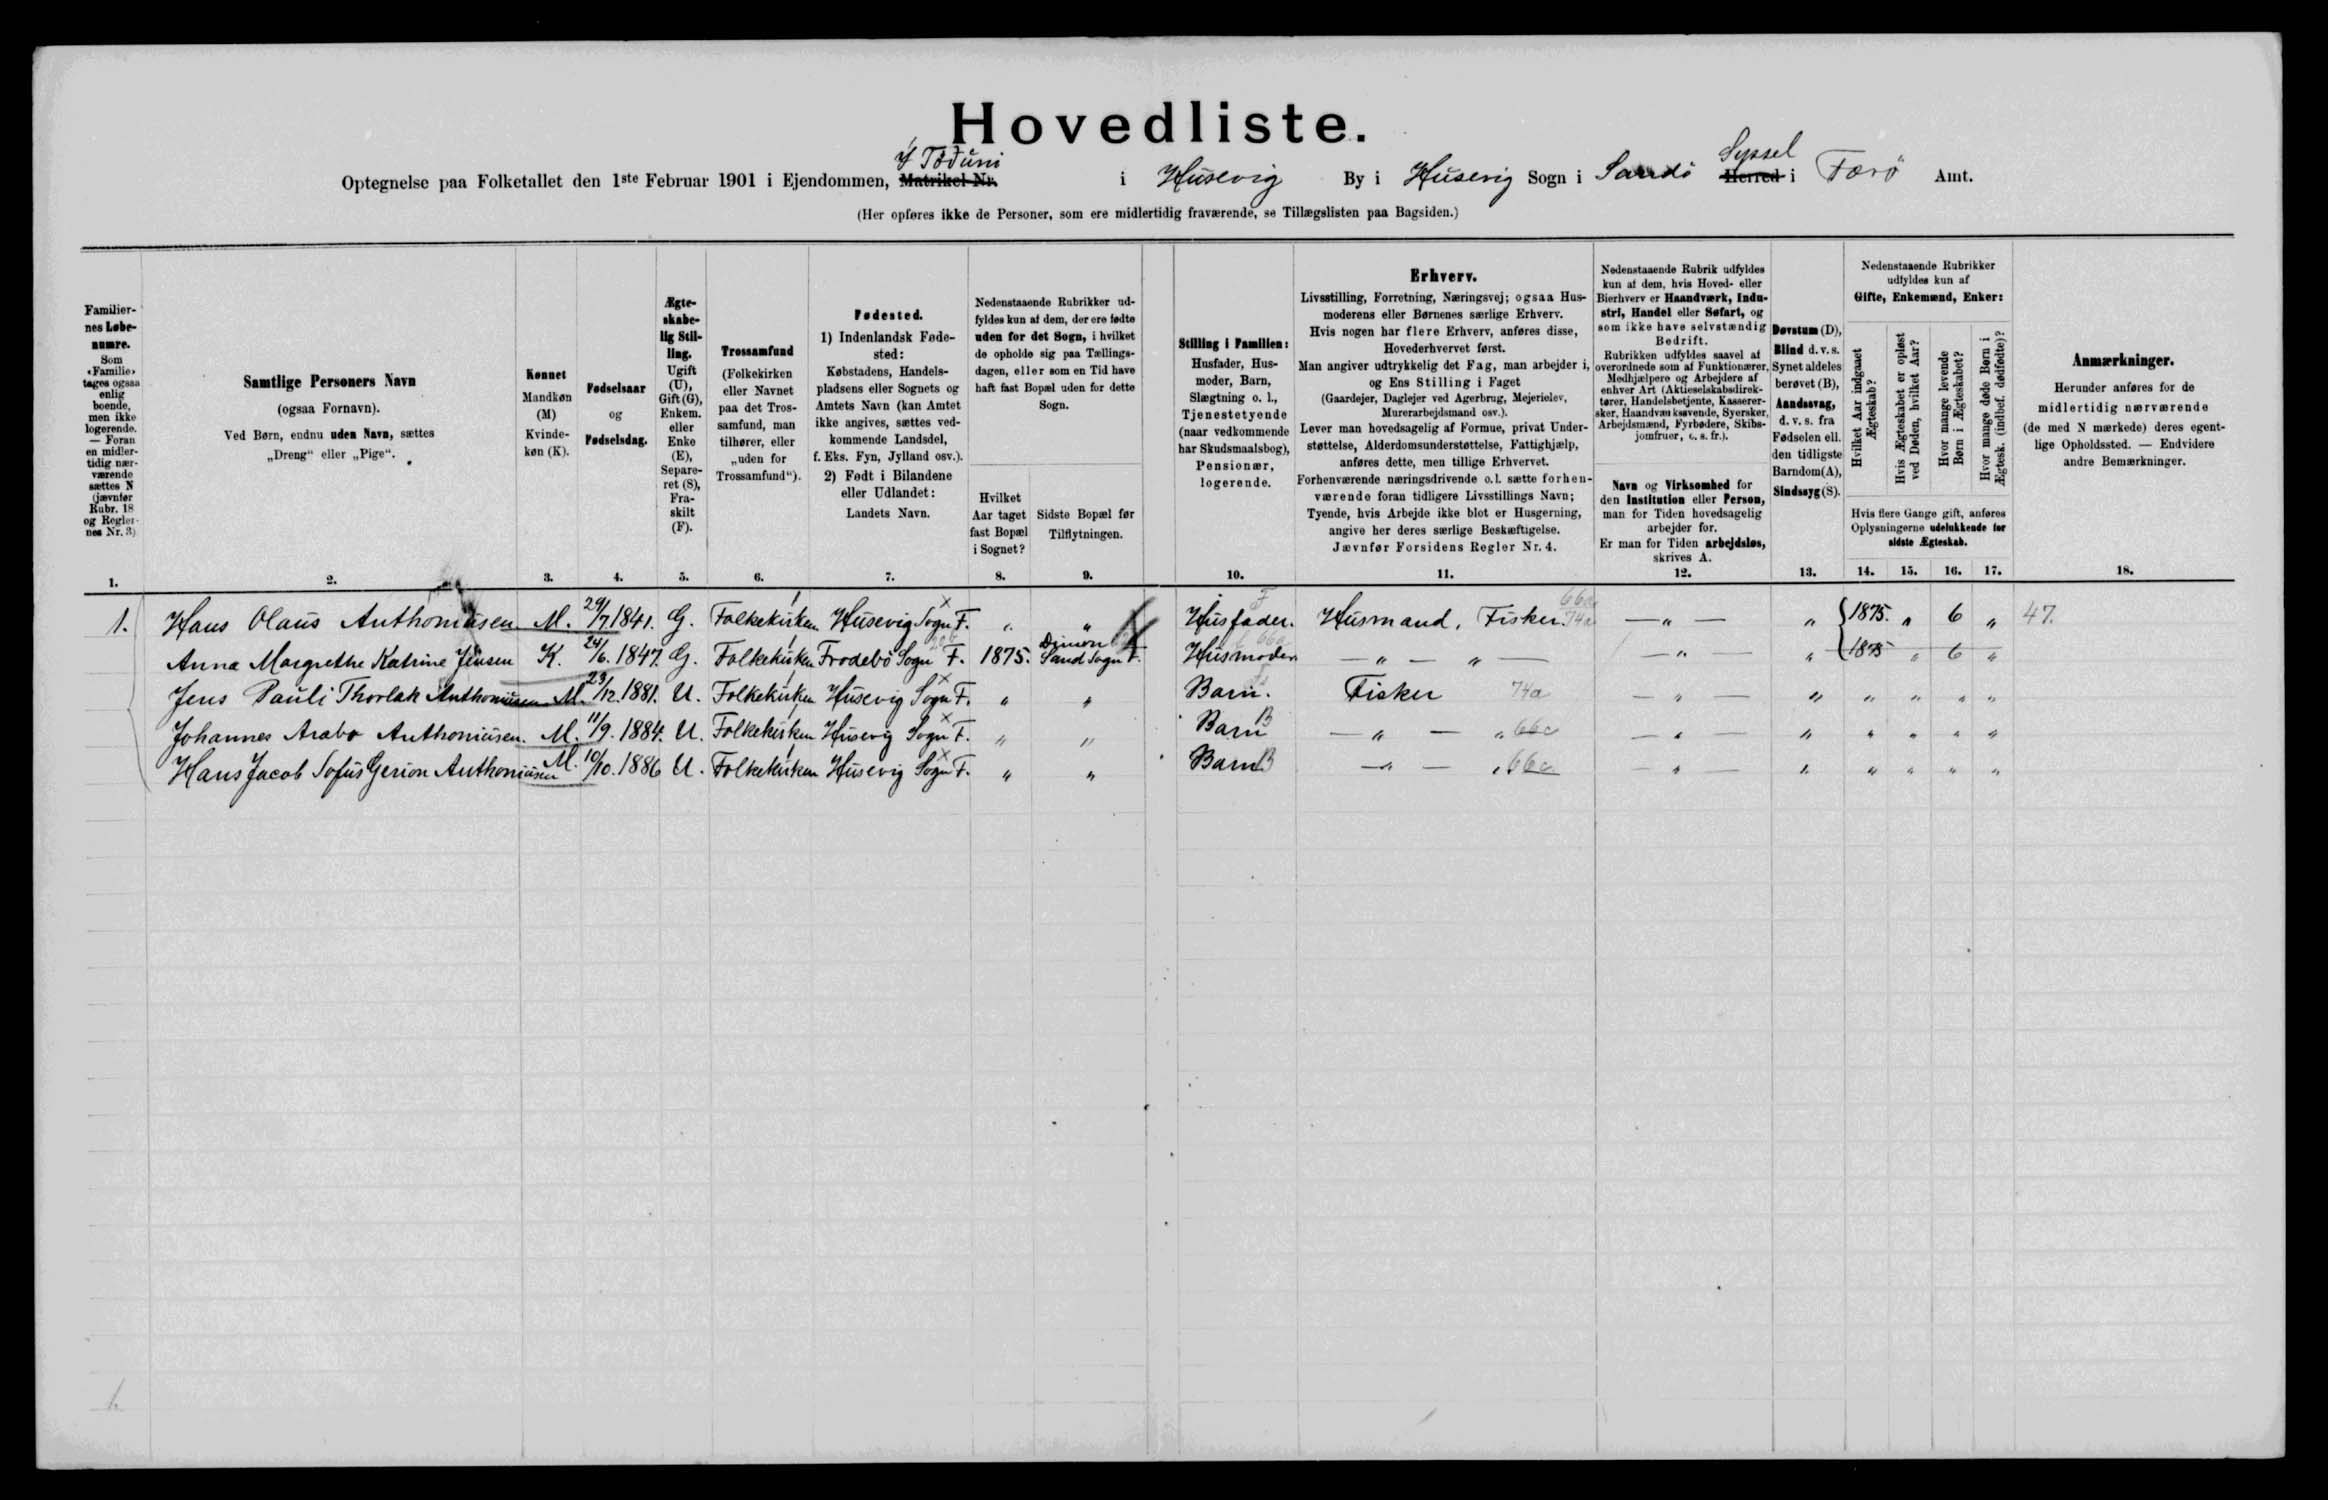 Hovedliste.
Í Tøðuni Syssel
Optegnelse paa Folketallet den 1ste Februar 1901 i Ejendommen, Matrikel-Nr. i Husevig By i Husevig Sogn i Sandö Herred i Færö Amt.
(Her opføres ikke de Personer, som ere midlertidig fraværende, se Tillægslisten paa Bagsiden.)
Familier-
nes Løbe-
numre.
Som
«Familie»
tages ogsaa
enlig
boende,
men ikke
logerende.
— Foran
en midler-
tidig nær-
værende
sættes N
(jævnfør
Rubr. 18
og Regler-
nes Nr. 3)
1.
Samtlige Personers Navn
(ogsaa Fornavn).
Ved Børn, endnu uden Navn, sættes
„Dreng“ eller „Pige“.
2.
Kønnet
Mandkøn
(M)
Kvinde-
køn (K).
3.
Fødselsaar
og
Fødselsdag.
4.
Ægte-
skabe-
lig Stil-
ling.
Ugift
(U),
Gift (G),
Enkem.
eller
Enke
(E),
Separe-
ret (S),
Fra-
skilt
(F).
5.
Trossamfund
(Folkekirken
eller Navnet
paa det Tros-
samfund, man
tilhører, eller
„uden for
Trossamfund“).
6.
Fødested.
1) Indenlandsk Føde-
sted:
Købstadens, Handels-
pladsens eller Sognets og
Amtets Navn (kan Amtet
ikke angives, sættes ved-
kommende Landsdel,
f. Eks. Fyn, Jylland osv.).
2) Født i Bilandene
eller Udlandet:
Landets Navn.
7.
Nedenstaaende Rubrikker ud-
fyldes kun af dem, der ere fødte
uden for det Sogn, i hvilket
de opholde sig paa Tællings-
dagen, eller som en Tid have
haft fast Bopæl uden for dette
Sogn.
Hvilket
Aar taget
fast Bopæl
i Sognet?
8.
Sidste Bopæl før
Tilflytningen.
9.
Stilling i Familien:
Husfader, Hus-
moder, Barn,
Slægtning o. l.,
Tjenestetyende
(naar vedkommende
har Skudsmaalsbog),
Pensionær,
logerende.
10.
Erhverv.
Livsstilling, Forretning, Næringsvej; ogsaa Hus-
moderens eller Børnenes særlige Erhverv.
Hvis nogen har flere Erhverv, anføres disse,
Hovederhvervet først.
Man angiver udtrykkelig det Fag, man arbejder i,
og Ens Stilling i Faget
(Gaardejer, Daglejer ved Agerbrug, Mejerielev,
Murerarbejdsmand osv.).
Lever man hovedsagelig af Formue, privat Under-
støttelse, Alderdomsunderstøttelse, Fattighjælp,
anføres dette, men tillige Erhvervet.
Forhenværende næringsdrivende o.l. sætte forhen-
værende foran tidligere Livsstillings Navn;
Tyende, hvis Arbejde ikke blot er Husgerning,
angive her deres særlige Beskæftigelse.
Jævnfør Forsidens Regler Nr. 4.
11.
Nedenstaaende Rubrik udfyldes
kun af dem, hvis Hoved- eller
Bierhverv er Haandværk, Indu-
stri, Handel eller Søfart, og
som ikke have selvstændig
Bedrift.
Rubrikken udfyldes saavel af
overordnede som af Funktionærer,
Medhjælpere og Arbejdere af
enhver Art (Aktieselskabsdirek-
tører, Handelsbetjente, Kasserer-
sker, Haandværksøvende, Syersker,
Arbejdsmænd, Fyrbødere, Skibs-
jomfruer, o. s. fr.).
Navn og Virksomhed for
den Institution eller Person,
man for Tiden hovedsagelig
arbejder for.
Er man for Tiden arbejdsløs,
skrives A.
12.
Døvstum (D),
Blind d. v. s.
Synet aldeles
berøvet (B),
Aandssvag,
d. v. s. fra
Fødselen ell.
den tidligste
Barndom (A),
Sindssyg (S).
13.
Nedenstaaende Rubrikker
udfyldes kun af
Gifte, Enkemænd, Enker:
Hvilket Aar indgaaet
Ægteskab?
Hvis Ægteskabet er opløst
ved Døden, hvilket Aar?
Hvor mange levende
Børn i Ægteskabet?
Hvor mange døde Børn i
Ægtesk. (indbef. dødfødte)?
Hvis flere Gange gift, anføres
Oplysningerne udelukkende for
sidste Ægteskab.
14. 15. 16. 17.
Anmærkninger.
Herunder anføres for de
midlertidig nærværende
(de med N mærkede) deres egent-
lige Opholdssted. — Endvidere
andre Bemærkninger.
18.
1. Hans Olaus Anthoniusen M. 29/7 1841. G. Folkekirken Husevig Sogn F. „ „ Husfader. Husmand, Fisker. 66a 74a — „ — „ 1875. „ 6 „ 47.
Anna Margrethe Katrine Jensen K. 24/6. 1847. G. Folkekirken Frodebö Sogn F. 1875. Dimon Sand Sogn F. Husmoder — „ — „ — — „ — „ 1875 „ 6 „
Jens Pauli Thorlak Anthoniusen M. 23/12. 1881. U. Folkekirken Husevig Sogn F. „ „ Barn. Fisker 74a — „ — „ „ „ „ „
Johannes Arabo Anthoniusen. M. 11/9. 1884. U. Folkekirken Husevig Sogn F. „ „ Barn B — „ — „ 66c — „ — „ „ „ „ „
Hans Jacob Sofus Gerion Anthoniusen M. 10/10. 1886 U. Folkekirken Husevig Sogn F. „ „ Barn B — „ — „ 66c — „ — „ „ „ „ „